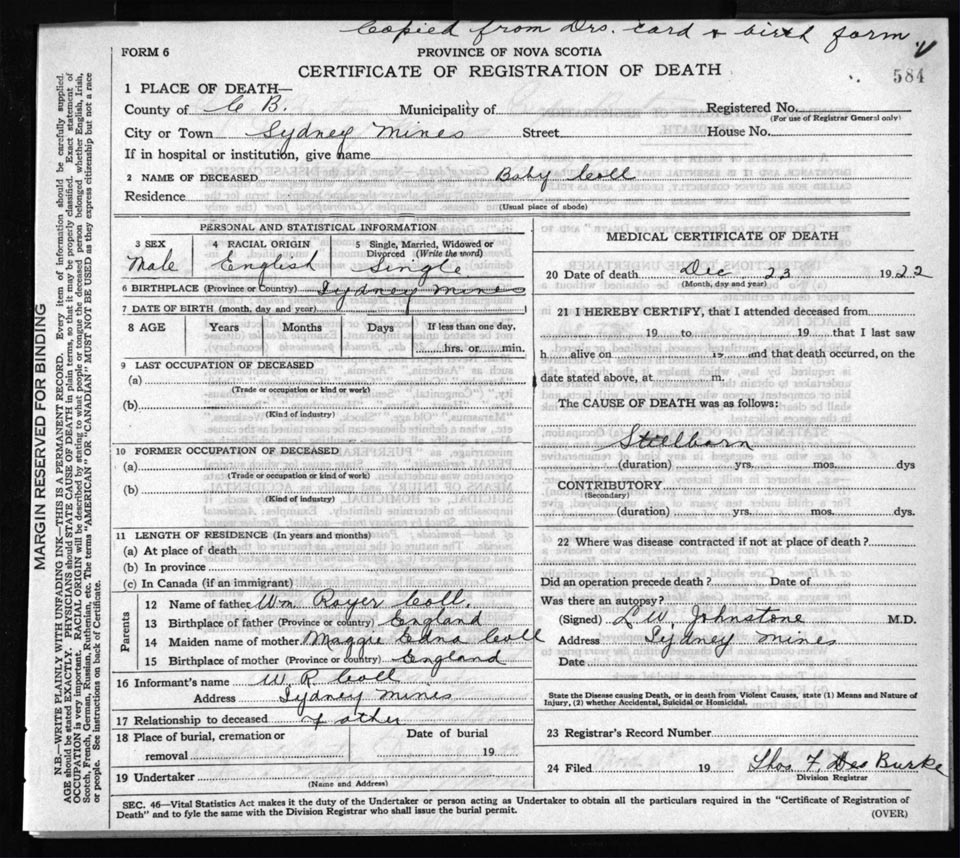 Copied from Drs. card & birth form
FORM 6
PROVINCE OF NOVA SCOTIA
584
CERTIFICATE OF REGISTRATION OF DEATH
1 PLACE OF DEATH—
County of C B. Municipality of Registered No.
(For use of Registrar General only)
City or Town Sydney Mines Street House No.
If in hospital or institution, give name
2 NAME OF DECEASED Baby Coll
Residence
(Usual place of abode)
PERSONAL AND STATISTICAL INFORMATION
3 SEX 4 RACIAL ORIGIN 5 Single, Married, Widowed or Divorced (Write the word)
Male English Single
6 BIRTHPLACE (Province or country) Sydney Mines
7 DATE OF BIRTH (month, day and year)
8 AGE Years Months Days If less than one day,
hrs. or min.
9 LAST OCCUPATION OF DECEASED
(a)
(Trade or occupation or kind of work)
(b)
(Kind of industry)
10 FORMER OCCUPATION OF DECEASED
(a)
(Trade or occupation or kind of work)
(b)
(Kind of industry)
11 LENGTH OF RESIDENCE (In years and months)
(a) At place of death
(b) In province
(c) In Canada (if an immigrant)
Parents
12 Name of father Wm. Royer Coll.
13 Birthplace of father (Province or country) England
14 Maiden name of mother Maggie Edna Coll
15 Birthplace of mother (Province or country) England
16 Informant's name W. R. Coll
Address Sydney Mines
17 Relationship to deceased Father
18 Place of burial, cremation or Date of burial
removal 19
19 Undertaker
(Name and Address)
MEDICAL CERTIFICATE OF DEATH
20 Date of death Dec 23 1922
(Month, day and year)
21 I HEREBY CERTIFY, that I attended deceased from
19 to 19 that I last saw
h alive on 19 and that death occurred, on the
date stated above, at m.
The CAUSE OF DEATH was as follows:
Stillborn
(duration) yrs. mos. dys
CONTRIBUTORY
(Secondary)
(duration) yrs. mos. dys.
22 Where was disease contracted if not at place of death?
Did an operation precede death? Date of
Was there an autopsy?
(Signed) L. W. Johnstone M.D.
Address Sydney Mines
Date
State the Disease causing Death, or in death from Violent Causes, state (1) Means and Nature of
Injury, (2) whether Accidental, Suicidal or Homicidal.
23 Registrar's Record Number
24 Filed 19 Thos F. Des Burke
Division Registrar
SEC. 46—Vital Statistics Act makes it the duty of the Undertaker or person acting as Undertaker to obtain all the particulars required in the "Certificate of Registration of
Death" and to fyle the same with the Division Registrar who shall issue the burial permit.
(OVER)
MARGIN RESERVED FOR BINDING
N.B.—WRITE PLAINLY WITH UNFADING INK—THIS IS A PERMANENT RECORD. Every item of information should be carefully supplied.
AGE should be stated EXACTLY. PHYSICIANS should STATE CAUSE OF DEATH in plain terms, so that it may be properly classified. Exact statement of
OCCUPATION is very important. RACIAL ORIGIN will be described by stating to what people or tongue the deceased person belonged whether English, Irish,
Scotch, French, German, Russian, Ruthenian, etc. The terms "AMERICAN" OR "CANADIAN" MUST NOT BE USED as they express citizenship but not a race
or people. See instructions on back of Certificate.